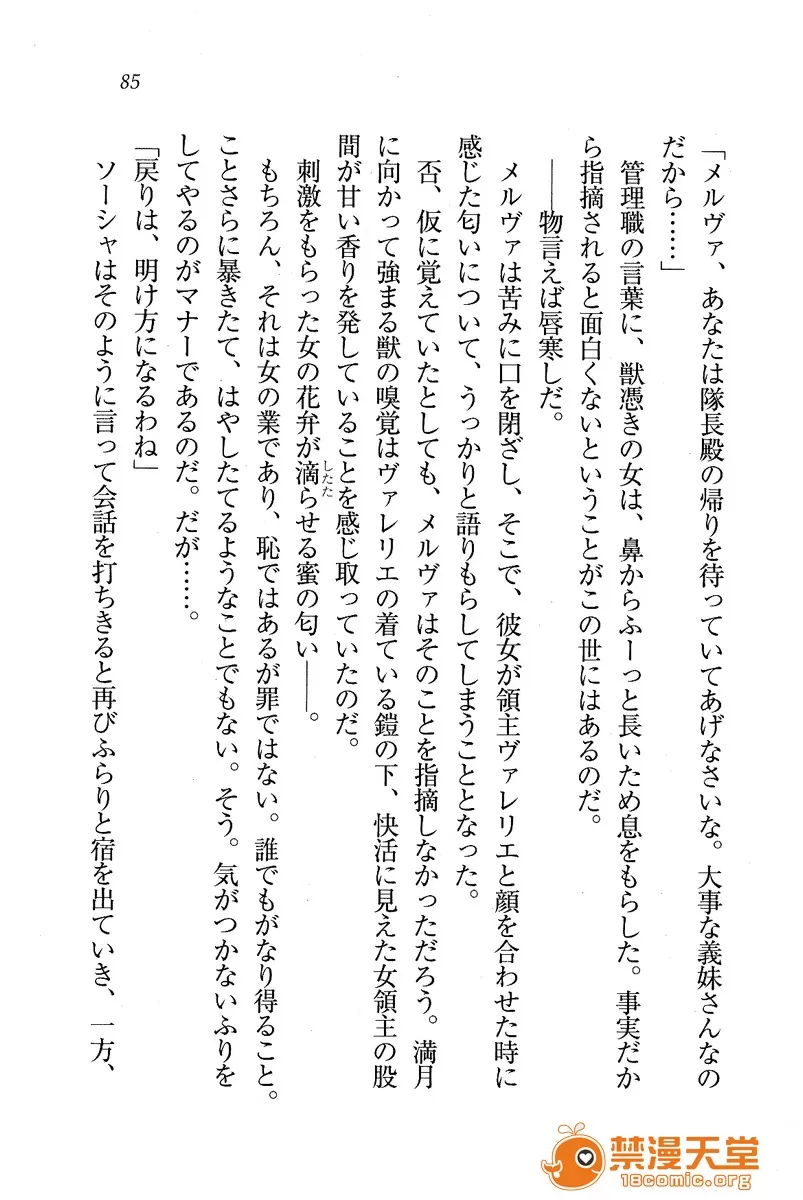 85
「メルヴァ、あなたは隊長殿の帰りを待っていてあげなさいな。大事な義妹さんなの
だから……」
管理職の言葉に、獣憑きの女は、鼻からふーっと長いため息をもらした。事実だか
ら指摘されると面白くないということがこの世にはあるのだ。
――物言えば唇寒しだ。
メルヴァは苦みに口を閉ざし、そこで、彼女が領主ヴァレリエと顔を合わせた時に
感じた匂いについて、うっかりと語りもらしてしまうこととなった。
否、仮に覚えていたとしても、メルヴァはそのことを指摘しなかっただろう。満月
に向かって強まる獣の嗅覚はヴァレリエの着ている鎧の下、快活に見えた女領主の股
間が甘い香りを発していることを感じ取っていたのだ。
刺激をもらった女の花弁が滴らせる蜜の匂い――。
したた
もちろん、それは女の業であり、恥ではあるが罪ではない。誰でもがなり得ること。
ことさらに暴きたて、はやしたてるようなことでもない。そう。気がつかないふりを
してやるのがマナーであるのだ。だが……。
「戻りは、明け方になるわね」
ソーシャはそのように言って会話を打ちきると再びふらりと宿を出ていき、一方、
禁漫天堂
18comic.org